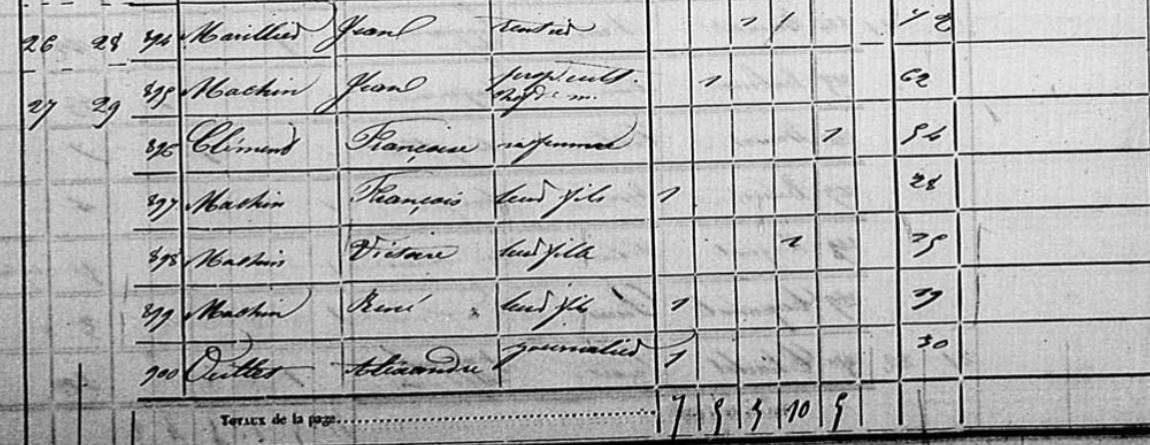 26 28 894 Marillier Jean rentier 1 72
27 29 895 Machin Jean prop. cult. chef de m. 1 62
896 Clémens Françoise sa femme 1 54
897 Machin François leur fils 1 28
898 Machin Victoire leur fille 1 25
899 Machin René leur fils 1 19
900 Alexandre journalier 1 30
TOTAUX de la page 7 5 3 10 5